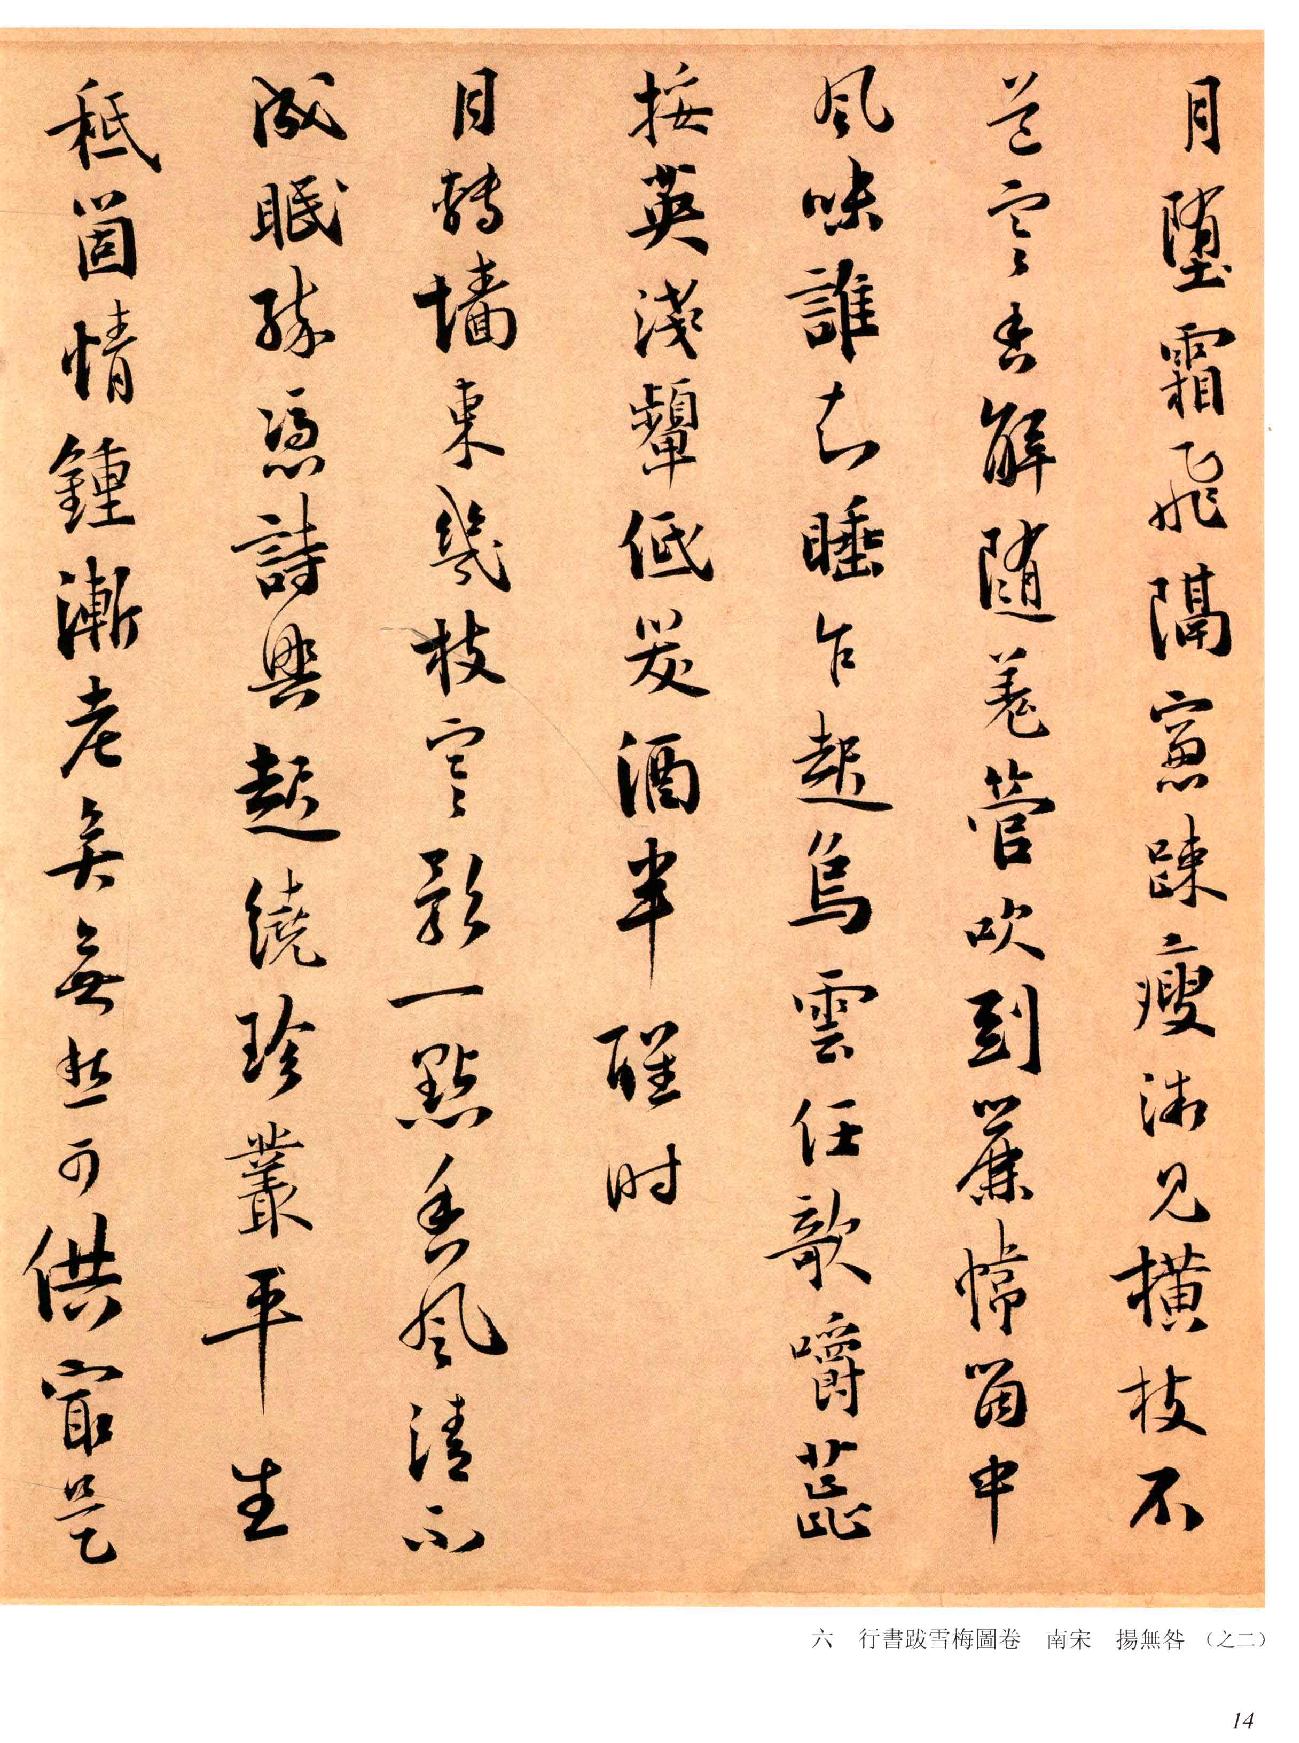 月墮霜飛隔窻疎瘦微見橫枝不
道寒香解隨羌管吹到簾幃箇中
風味誰知睡乍起烏雲任欹嚼蕊
挼英淺顰低笑酒半醒時
月轉墻東幾枝寒影一點香風清不
成眠醉憑詩興起繞珍叢平生
秖箇情鍾漸老矣無愁可供最是
六 行書跋雪梅圖卷 南宋 揚無咎 （之二）
14